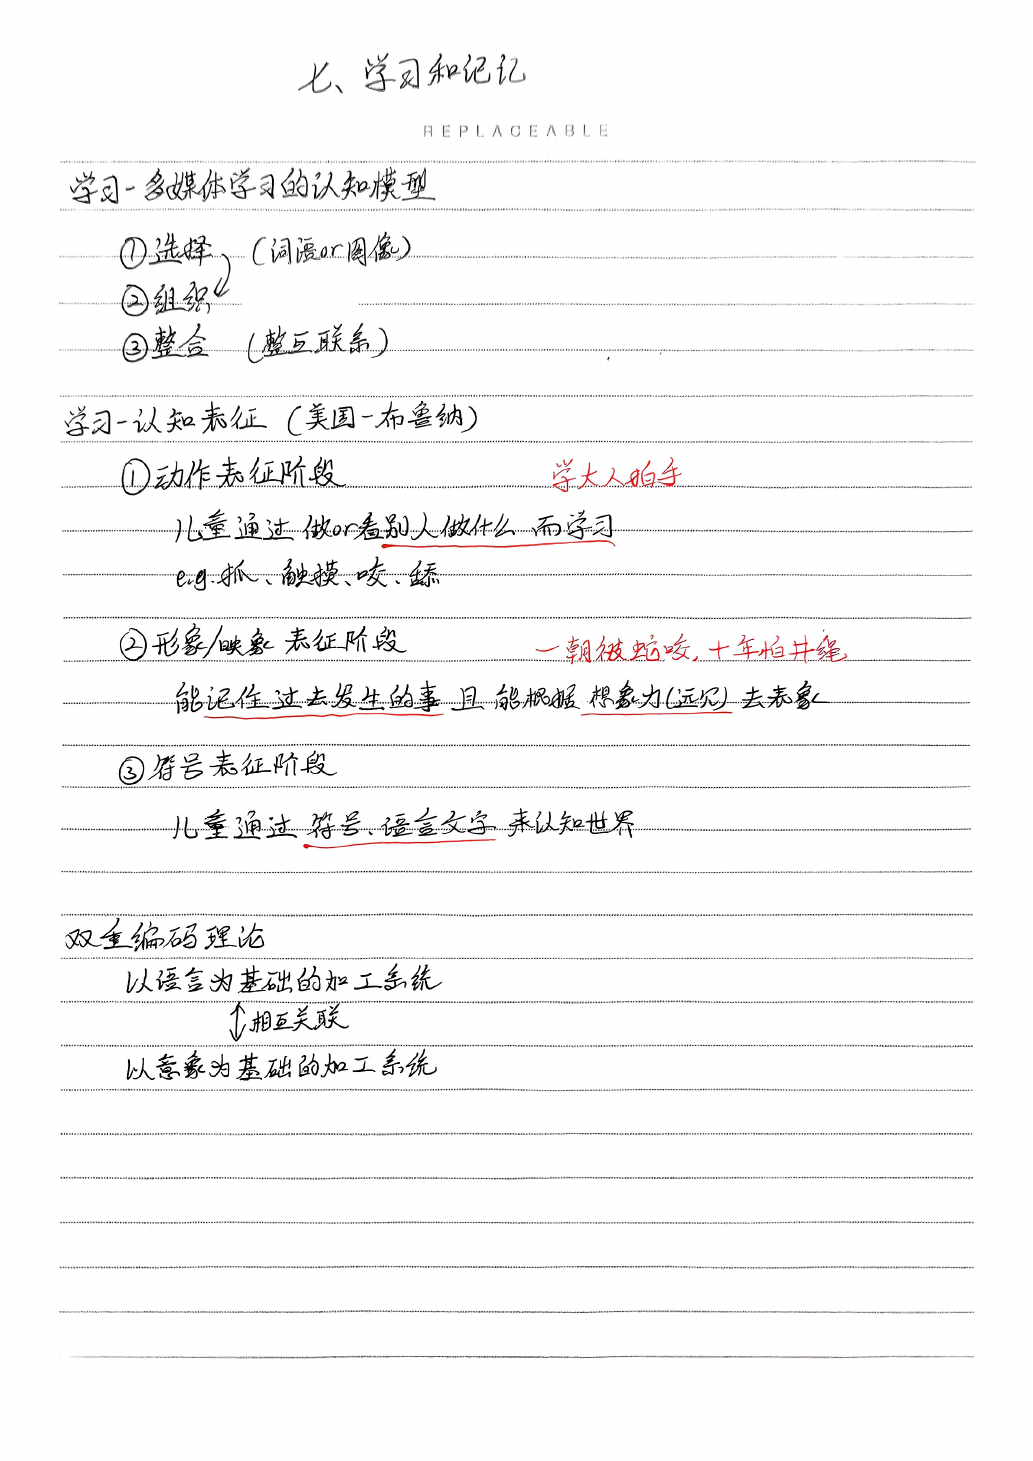 七、学习和记忆
REPLACEABLE
学习-多媒体学习的认知模型
①选择 (词语or图像)
②组织
③整合 (整互联系)
学习-认知表征 (美国-布鲁纳)
①动作表征阶段 学大人拍手
儿童通过做or看别人做什么而学习
e.g.抓、触摸、咬、舔
②形象/映象表征阶段 一朝被蛇咬,十年怕井绳
能记住过去发生的事且能根据想象力(远见)去表象
③符号表征阶段
儿童通过符号、语言文字来认知世界
双重编码理论
以语言为基础的加工系统
相互关联
以意象为基础的加工系统